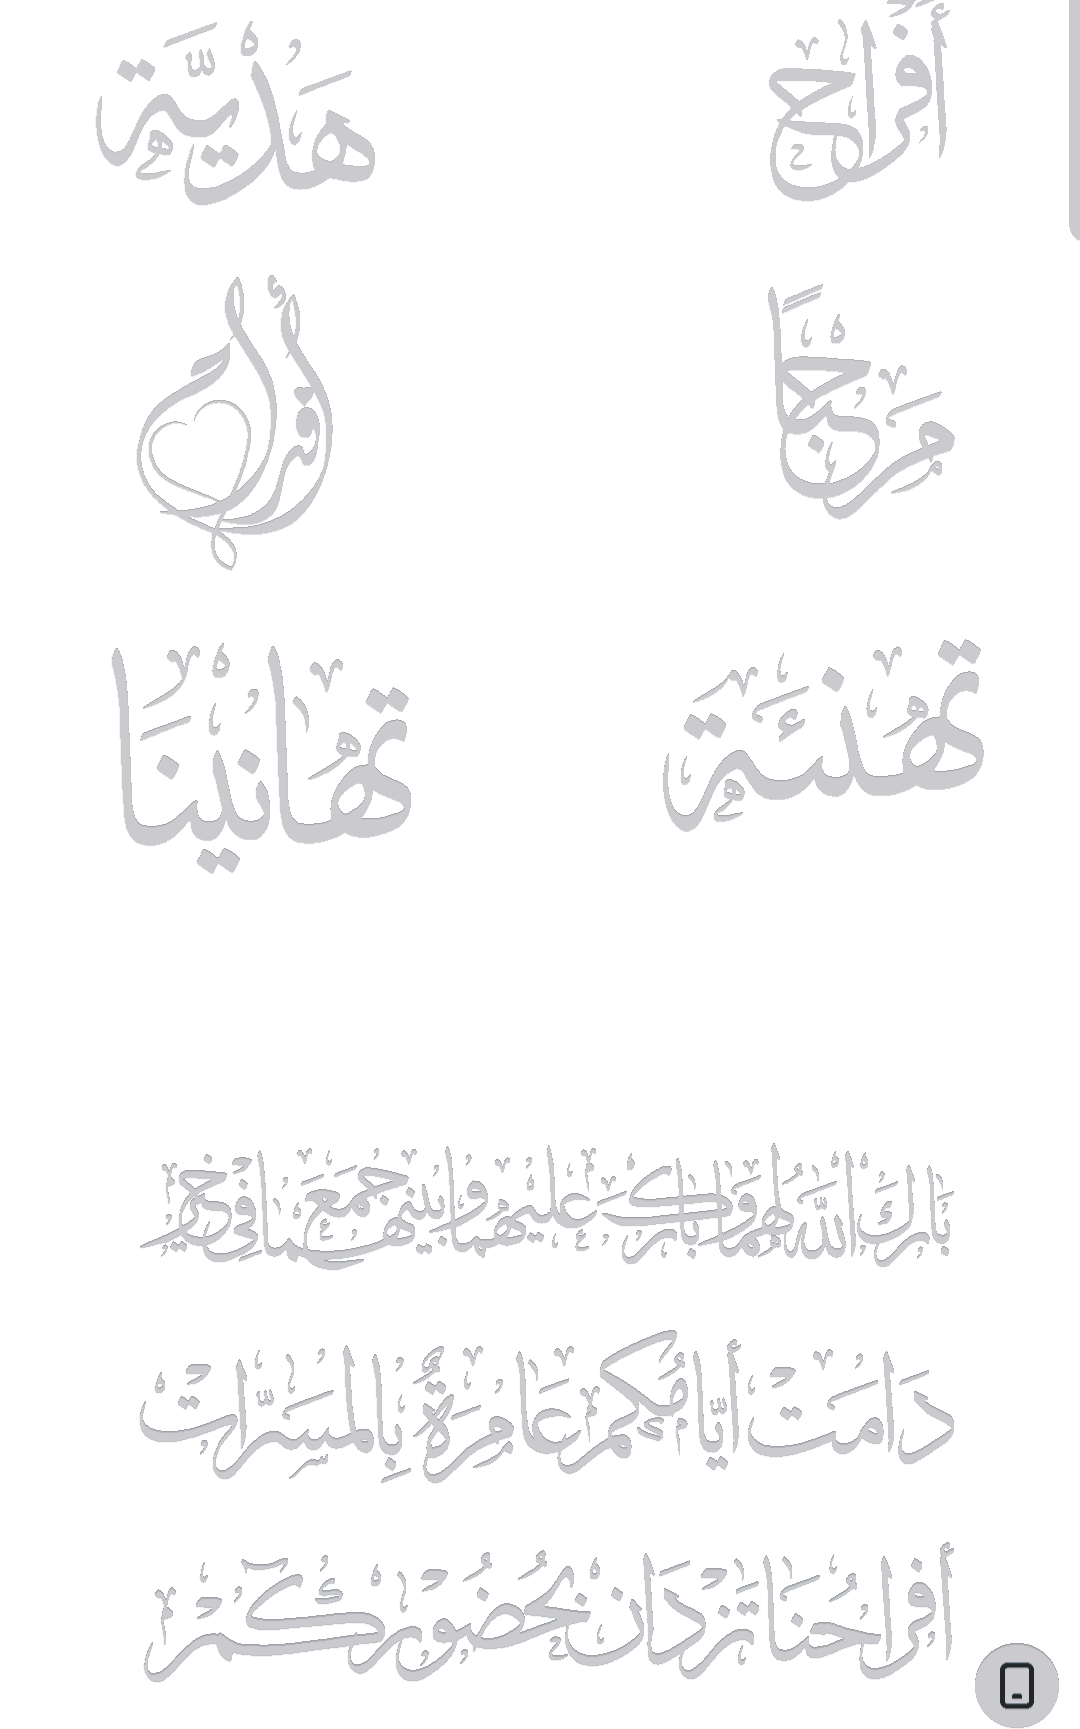 أفراح
هدية
مرحبًا
أفراح
تهنئة
تهانينا
بارك الله لهما وبارك عليهما وجمع بينهما في خير
دامت أيامكم عامرة بالمسرات
أفراحنا تزدان بحضوركم